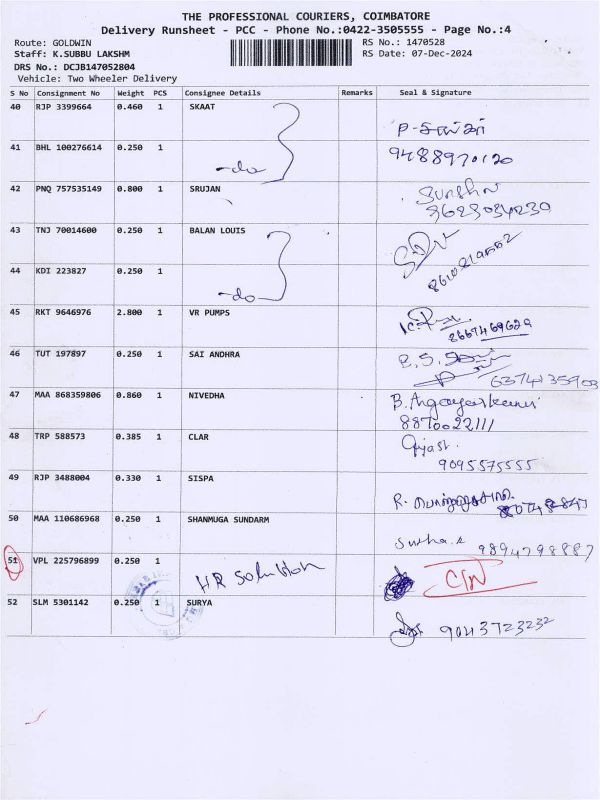 THE PROFESSIONAL COURIERS, COIMBATORE
Delivery Runsheet - PCC - Phone No.:0422-3505555 - Page No.:4
Route: GOLDWIN RS No.: 1470528
Staff: K.SUBBU LAKSHM RS Date: 07-Dec-2024
DRS No.: DCJB147052804
Vehicle: Two Wheeler Delivery
S No Consignment No Weight PCS Consignee Details Remarks Seal & Signature
40 RJP 3399664 0.460 1 SKAAT
P-சங்கர்
41 BHL 100276614 0.250 1 -do 9488970120
42 PNQ 757535149 0.800 1 SRUJAN
43 TNJ 70014600 0.250 1 BALAN LOUIS
44 KDI 223827 0.250 1
-do
45 RKT 9646976 2.800 1 VR PUMPS
8667469629
46 TUT 197897 0.250 1 SAI ANDHRA
6374135903
47 MAA 868359806 0.860 1 NIVEDHA
8870022111
48 TRP 588573 0.385 1 CLAR
9095575555
49 RJP 3488004 0.330 1 SISPA
50 MAA 110686968 0.250 1 SHANMUGA SUNDARM
Sudha.R 9894798887
51 VPL 225796899 0.250 1 HR Solution C/N
52 SLM 5301142 0.250 1 SURYA
9043723232